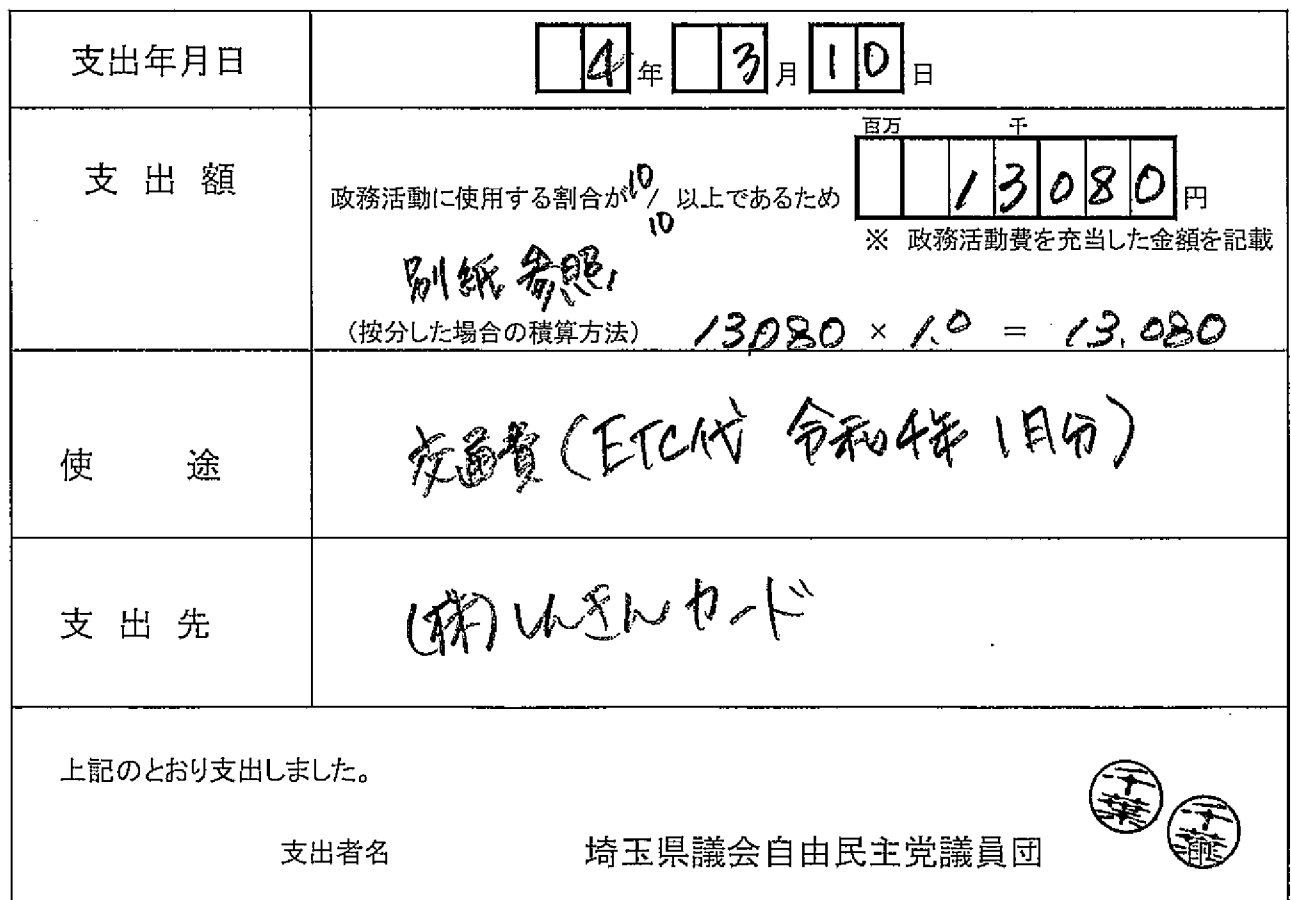 支出年月日 4年 3月 10日
百万 千
支出額 政務活動に使用する割合が10/10以上であるため 13080円
※ 政務活動費を充当した金額を記載
別紙参照
(按分した場合の積算方法) 13080 × 1.0 = 13.080
使途 交通費(ETC代 令和4年1月分)
支出先 (株)しんきんカード
上記のとおり支出しました。
千葉 千葉
支出者名 埼玉県議会自由民主党議員団